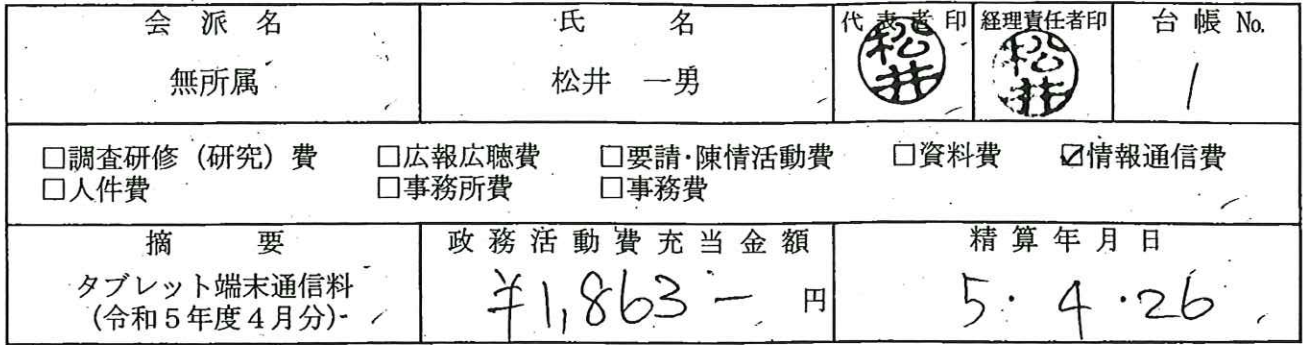 会派名 氏名 代表者印 経理責任者印 台帳No.
無所属 松井 一男 松井 松井 1
□調査研修(研究)費 □広報広聴費 □要請・陳情活動費 □資料費 ☑情報通信費
□人件費 □事務所費 □事務費
摘要 政務活動費充当金額 精算年月日
タブレット端末通信料
(令和5年度4月分) ¥1,863- 円 5・4・26